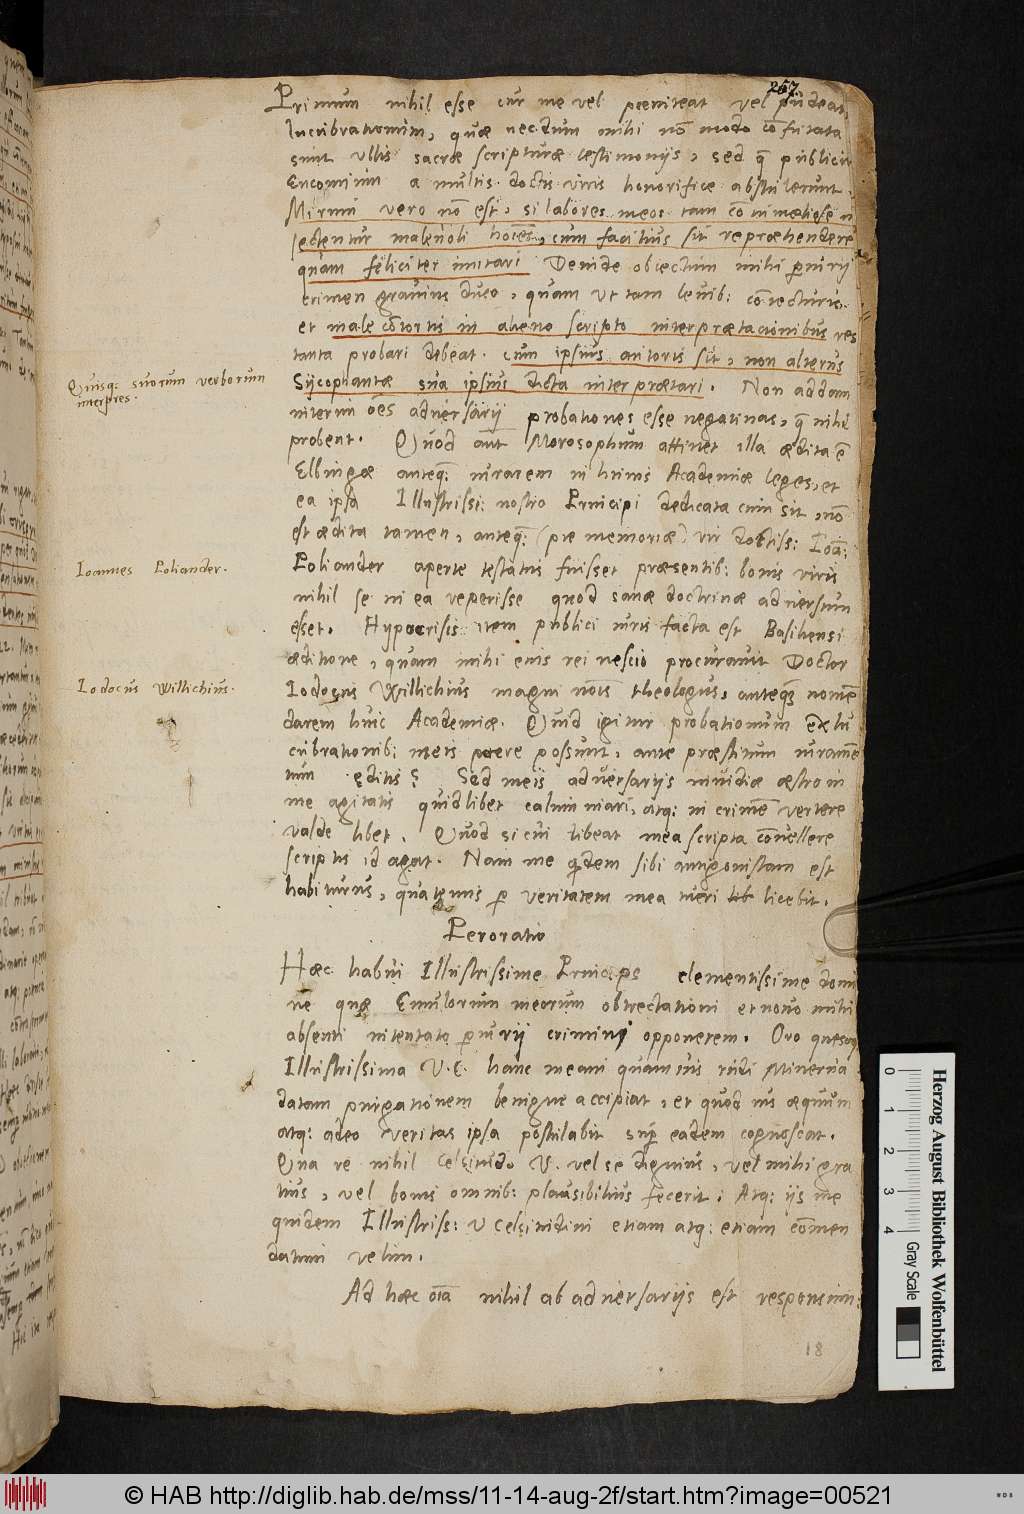 257.
Primum nihil esse cur me vel pœniteat vel pudeat,
lucubrationum, quæ necdum mihi nō modo cōfutata
sunt ullis sacræ scripturæ testimonijs, sed q̄ publicū
Encomium a multis doctis viris honorifice abstulerunt.
Mirum vero nō est, si labores meos tam
sectentur malevoli hoīes, cum facilius sit repræhendere
quam feliciter imitari. Deinde obiectum mihi periurij
crimen gravius duco, quam ut tam levib: cōiecturis.
et male cōtortis in alieno scripto interprætationibus res
tanta probari debeat. cum ipsius autoris sit, non alterius
Sycophantæ sua ipsius dicta interprætari. Non addam
interim oēs adversarij probationes esse negativas, q̄ nihil
probent. Quod aūt Morosophum attinet illa ædita ē
Elbingæ anteq̄: iurarem in huius Academiæ leges, et
ea ipsa Illustrissi: nostro Principi dedicata cum sit, nō
est ædita tamen, anteq̄: (piæ memoriæ) vir doctiss: Ioā:
Poliander aperte testatus fuisset præsentib: bonis viris
nihil se in ea reperisse quod sanæ doctrinæ adversum
esset. Hypocrisis item publici iuris facta est Basiliensi
æditione, quam mihi eius rei nescio procuravit Doctor
Iodocus Willichius magni nōis theologus, anteq̄ nomē
darem huic Academiæ. Quid igitur probationum ex lu
cubrationib: meis peti possunt, ante præstitum iuramē
tum editis? Sed meis adversarijs invidiæ æstro in
me agitatis quidlibet calumniari, atq: in crimē vertere
valde libet. Quod si cui libeat mea scripta cōvellere
scriptis id agat. Nam me q̄dem sibi antigonistam est
habiturus, quatenus p veritatem mea tueri licebit.
Peroratio
Hæc habui Illustrissime Princeps clementissime domi
ne quæ Emulorum meorum obtrectationi et novo mihi
absenti intentato periurij crimini opponerem. Oro quesoq
Illustrissima V. C. hanc meam quamvis rudi Minerva
datam purgationem benigne accipiat, et quod ius æquum
atq: adeo veritas ipsa postulabit sup eadem cognoscat.
Qua re nihil Celsitudo V. vel se dignius, vel mihi gra
tius, vel bonis omnib: plausibilius fecerit: Atq: ijs me
quidem Illustriss: V Celsitudini etiam atq: etiam cōmen
datum velim.
Ad hæc oīa nihil ab adversarijs est responsum:
Quisq: suorum verborum
interpres.
Ioannes Poliander.
Iodocus Willichius.
18
Herzog August Bibliothek Wolfenbüttel
0 1 2 3 4 Gray Scale
© HAB http://diglib.hab.de/mss/11-14-aug-2f/start.htm?image=00521